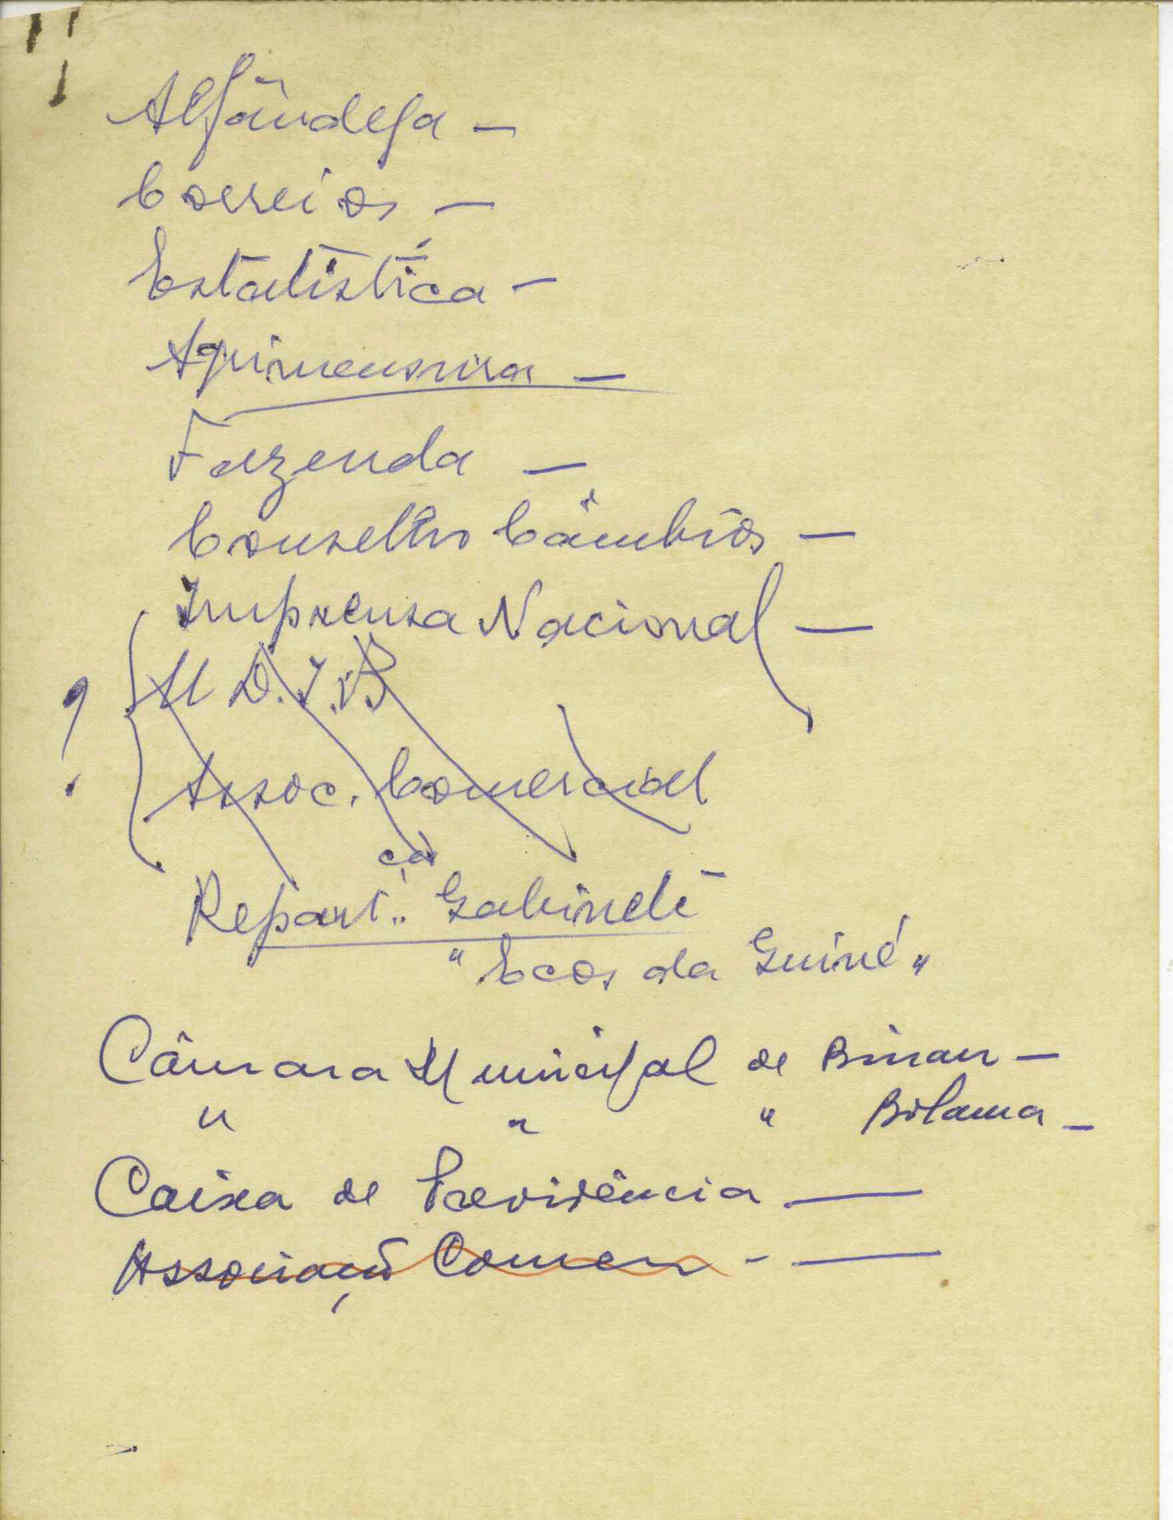 Alfândega —
Correios —
Estatística —
Agrimensura —
Fazenda —
Conselho Câmbios —
Imprensa Nacional —
U D. I. B
? Assoc. Comercial
Repart.ção Gabinete
"Ecos da Guiné"
Câmara Municipal de Bissau —
" " " Bolama —
Caixa de Previdência —
Associação Comer - —